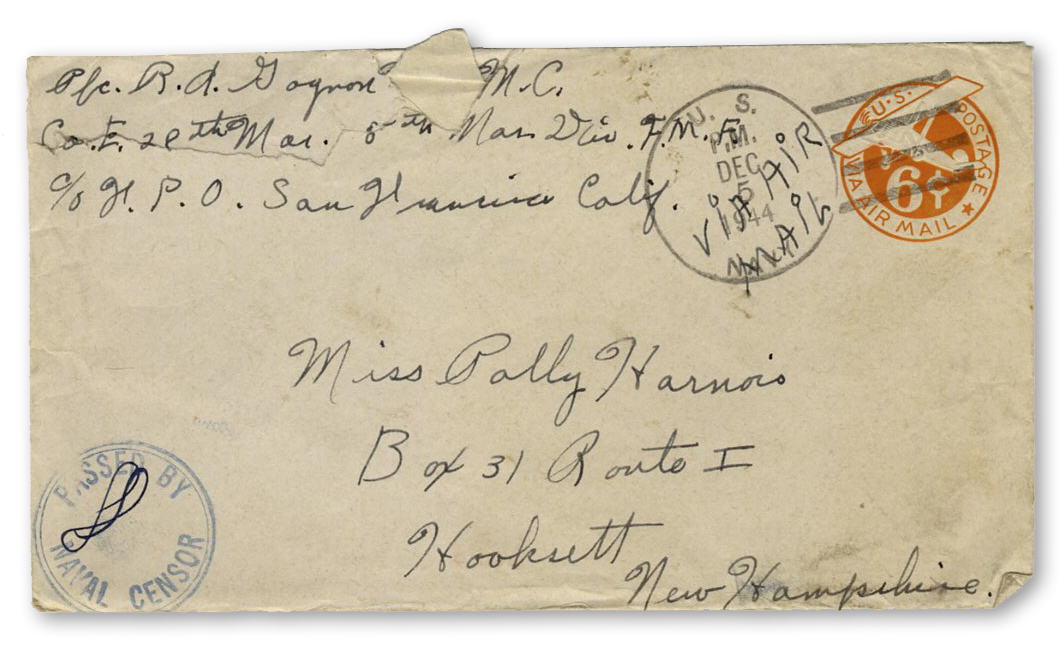 Pfc. R. A. Gagnon M.C.
Co. E. 28th Mar. 5th Mar. Div. F.M.F.
c/o F. P. O. San Francisco Calif.
U. S.
P.M.
DEC
5
1944
VIA AIR
MAIL
U.S. POSTAGE
6¢
VIA AIR MAIL
Miss Pally Harnois
Box 31 Route I
Hooksett
New Hampshire.
PASSED BY
NAVAL CENSOR